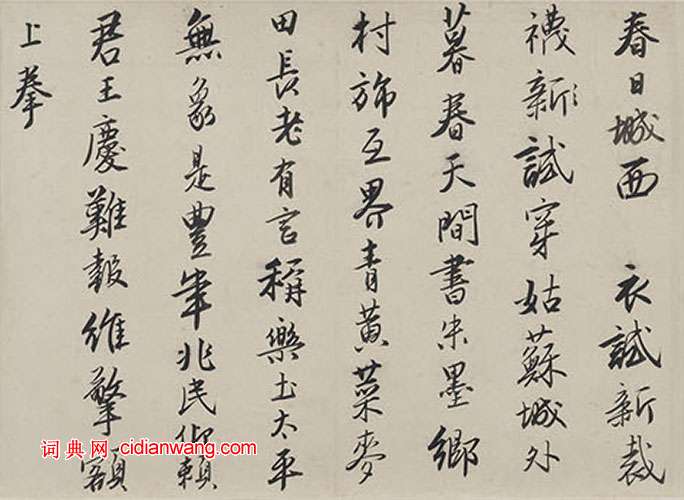 春日城西 衣試新裁
襪新試穿姑蘇城外
暮春天間書朱墨鄉
村旆互界青黃菜麥
田長老有言稱樂土太平
無象是豐年兆民仰賴
君王慶難報維擎額
上拳
词典网·cidianwang.com